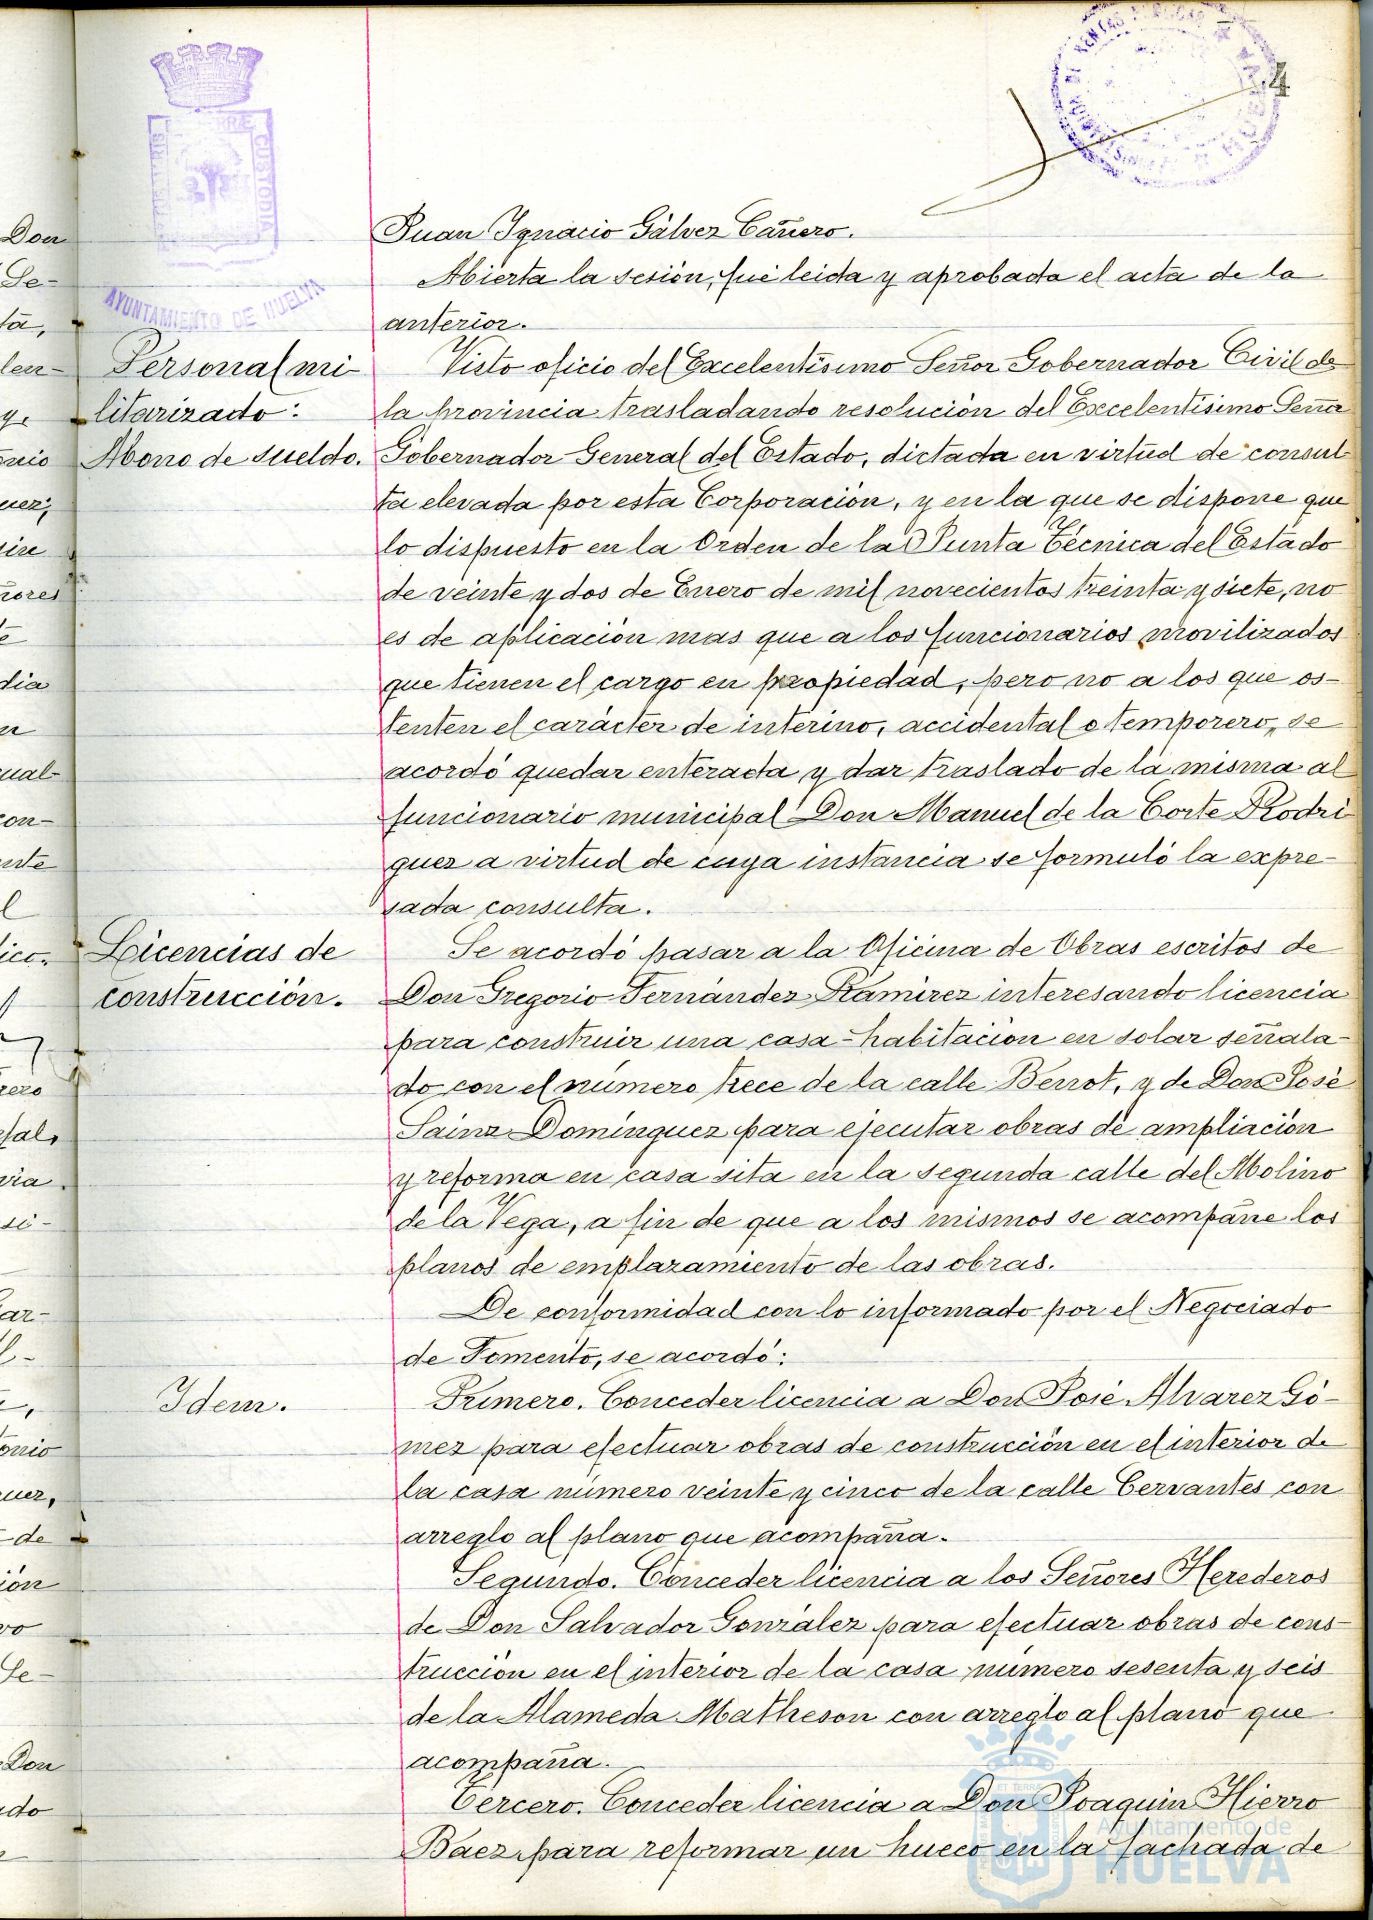 4
AYUNTAMIENTO DE HUELVA
Juan Ignacio Gálvez Cañero.
Abierta la sesión, fué leida y aprobada el acta de la
anterior.
Personal mi-
litarizado:
Abono de sueldo.
Visto oficio del Excelentísimo Señor Gobernador Civil de
la provincia trasladando resolución del Excelentísimo Señor
Gobernador General del Estado, dictada en virtud de consul-
ta elevada por esta Corporación, y en la que se dispone que
lo dispuesto en la Orden de la Junta Técnica del Estado
de veinte y dos de Enero de mil novecientos treinta y siete, no
es de aplicación mas que a los funcionarios movilizados
que tienen el cargo en propiedad, pero no a los que os-
tenten el carácter de interino, accidental o temporero, se
acordó quedar enterada y dar traslado de la misma al
funcionario municipal Don Manuel de la Corte Rodri
guez a virtud de cuya instancia se formuló la expre-
sada consulta.
Licencias de
construcción.
Se acordó pasar a la Oficina de Obras escritos de
Don Gregorio Fernández Ramirez interesando licencia
para construir una casa-habitación en solar señala-
do con el número trece de la calle Berrot, y de Don José
Sainz Domínguez para ejecutar obras de ampliación
y reforma en casa sita en la segunda calle del Molino
de la Vega, a fin de que a los mismos se acompañe los
planos de emplazamiento de las obras.
De conformidad con lo informado por el Negociado
de Fomento, se acordó:
Idem.
Primero. Conceder licencia a Don José Alvarez Gó-
mez para efectuar obras de construcción en el interior de
la casa número veinte y cinco de la calle Cervantes con
arreglo al plano que acompaña.
Segundo. Conceder licencia a los Señores Herederos
de Don Salvador González para efectuar obras de cons-
trucción en el interior de la casa número sesenta y seis
de la Alameda Matheson con arreglo al plano que
acompaña.
Tercero. Conceder licencia a Don Joaquin Hierro
Baez para reformar un hueco en la fachada de
Ayuntamiento de
HUELVA